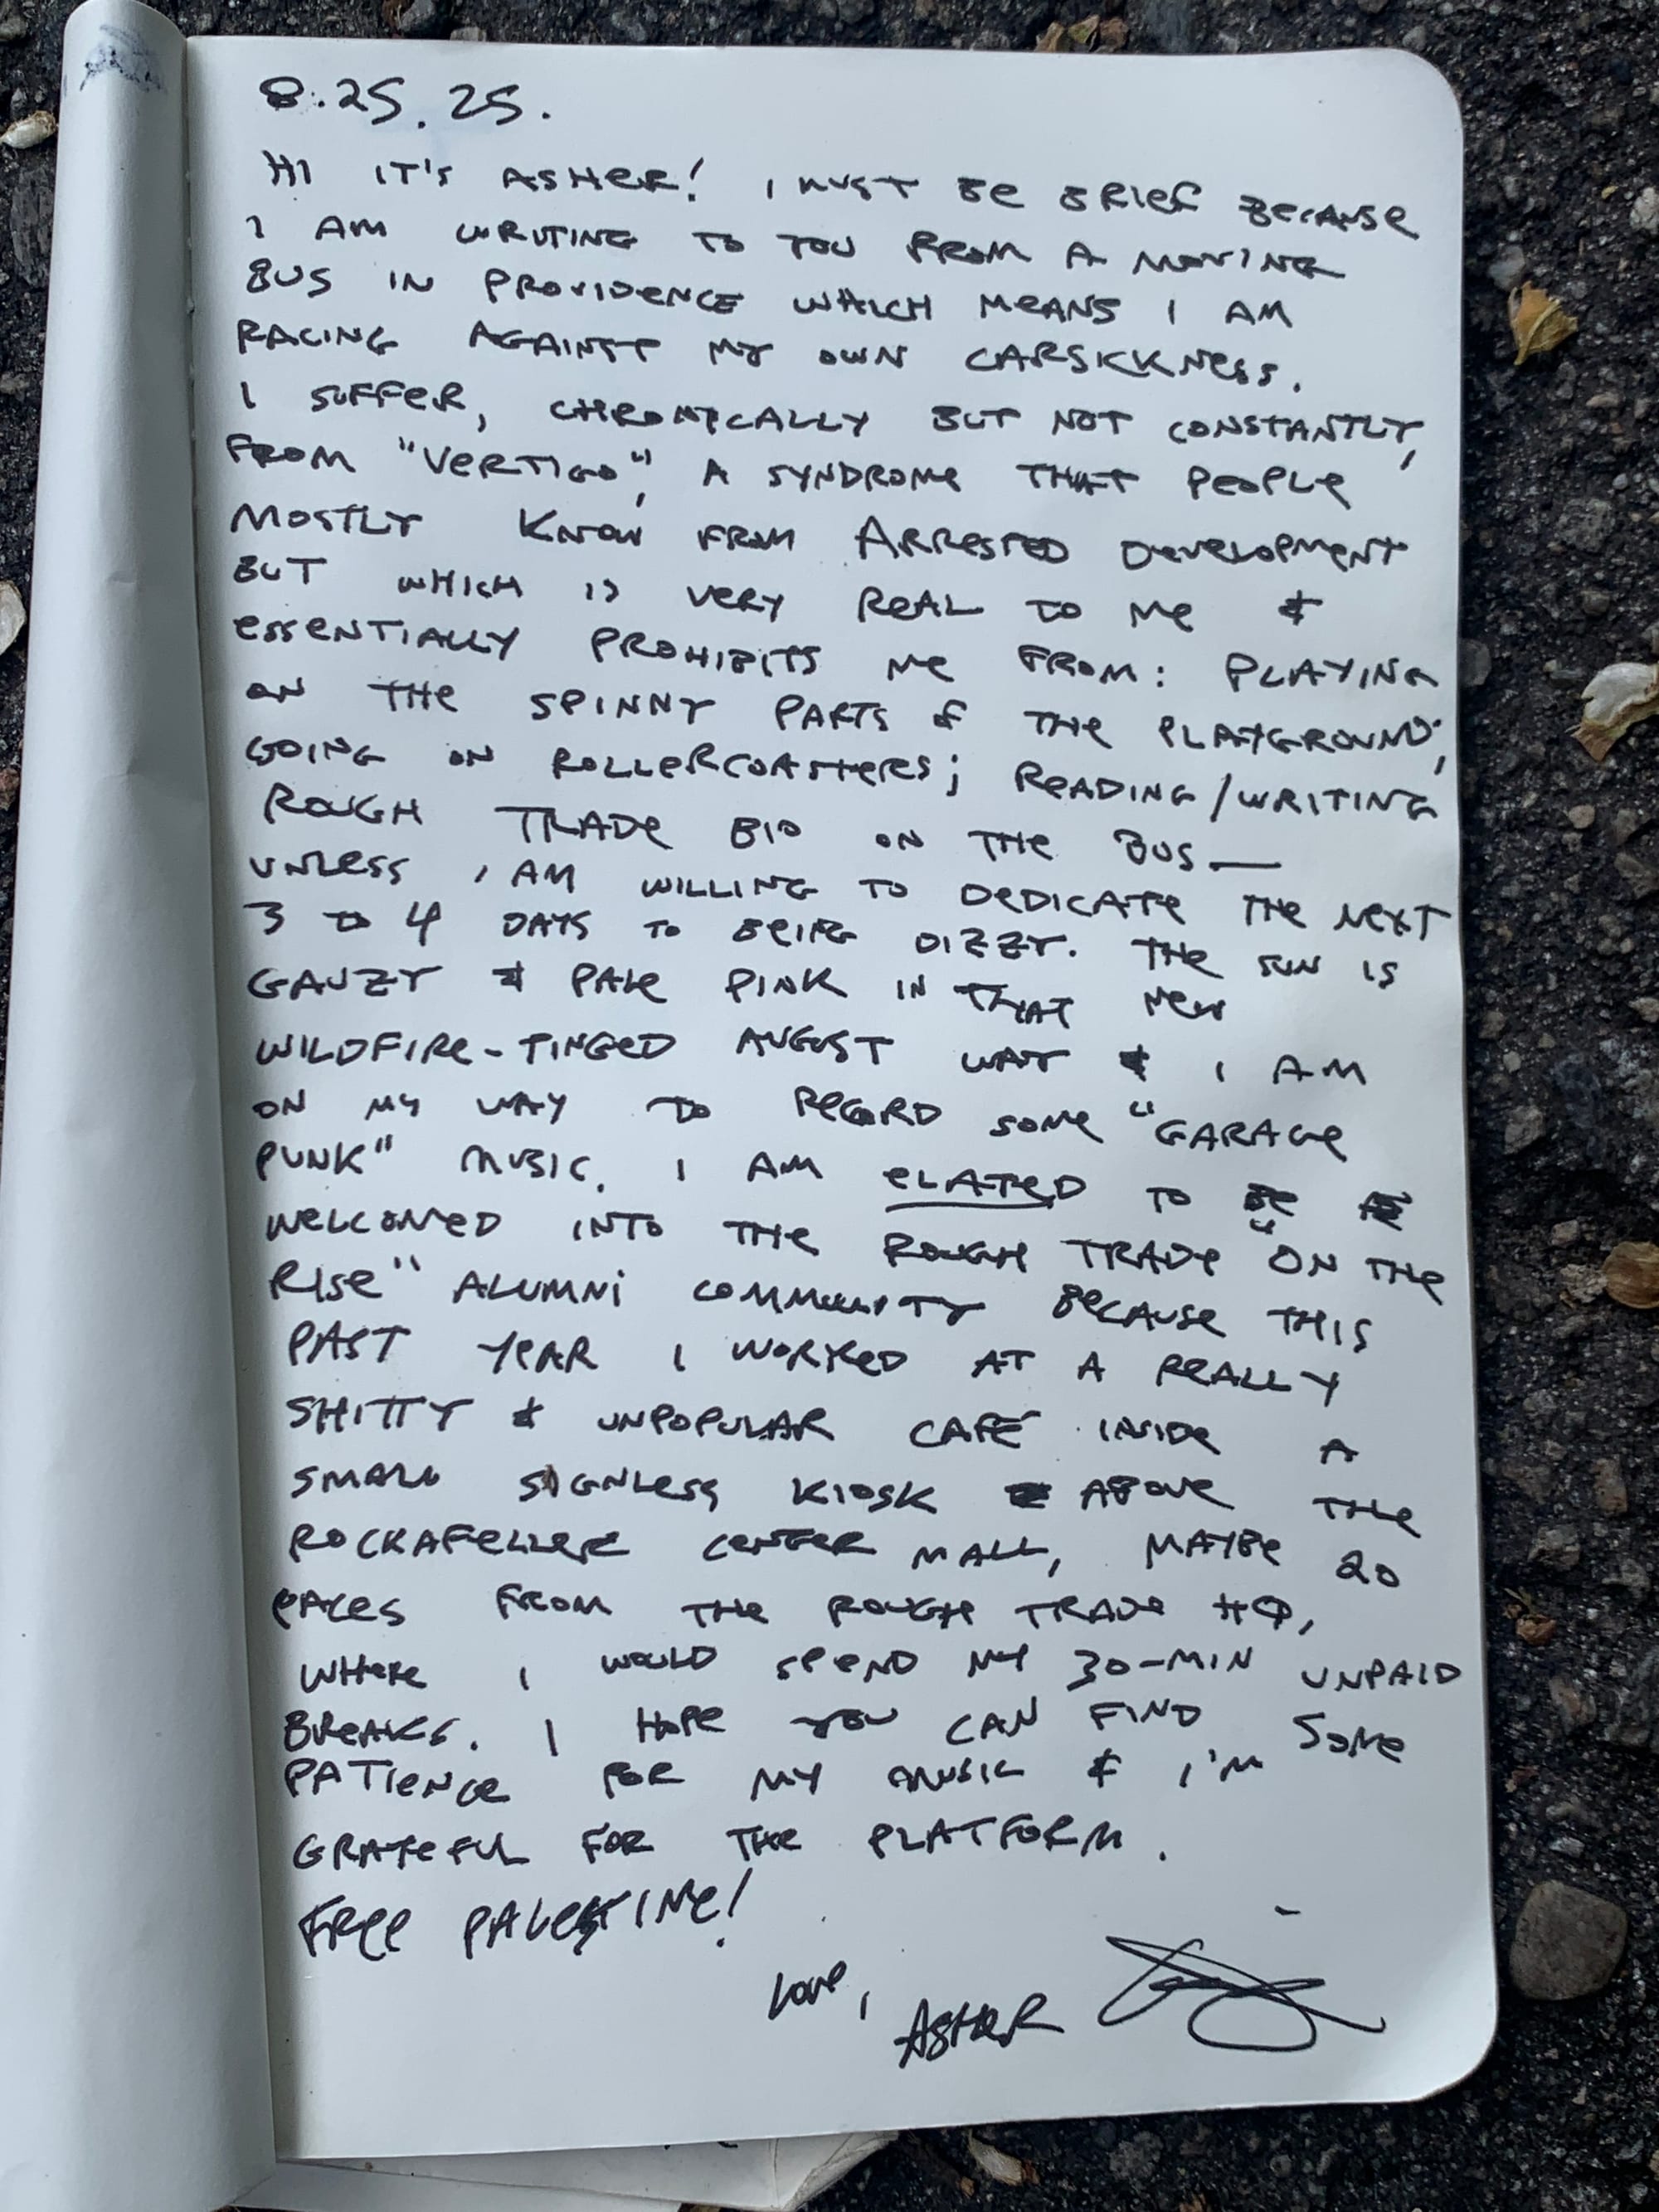 8.25.25.
HI IT'S ASHER! I MUST BE BRIEF BECAUSE
I AM WRITING TO YOU FROM A MOVING
BUS IN PROVIDENCE WHICH MEANS I AM
RACING AGAINST MY OWN CARSICKNESS.
I SUFFER, CHRONICALLY BUT NOT CONSTANTLY,
FROM "VERTIGO", A SYNDROME THAT PEOPLE
MOSTLY KNOW FROM ARRESTED DEVELOPMENT
BUT WHICH IS VERY REAL TO ME &
ESSENTIALLY PROHIBITS ME FROM: PLAYING
ON THE SPINNY PARTS OF THE PLAYGROUND;
GOING ON ROLLERCOASTERS; READING/WRITING
ROUGH TRADE BIO ON THE BUS—
UNLESS I AM WILLING TO DEDICATE THE NEXT
3 TO 4 DAYS TO BEING DIZZY. THE SUN IS
GAUZY & PALE PINK IN THAT NEW
WILDFIRE-TINGED AUGUST WAY & I AM
ON MY WAY TO RECORD SOME "GARAGE
PUNK" MUSIC. I AM ELATED TO BE
WELCOMED INTO THE ROUGH TRADE "ON THE
RISE" ALUMNI COMMUNITY BECAUSE THIS
PAST YEAR I WORKED AT A REALLY
SHITTY & UNPOPULAR CAFÉ INSIDE A
SMALL SIGNLESS KIOSK ABOVE THE
ROCKAFELLER CENTER MALL, MAYBE 20
PACES FROM THE ROUGH TRADE HQ,
WHERE I WOULD SPEND MY 30-MIN UNPAID
BREAKS. I HOPE YOU CAN FIND SOME
PATIENCE FOR MY MUSIC & I'M
GRATEFUL FOR THE PLATFORM.
FREE PALESTINE!
LOVE,
ASHER